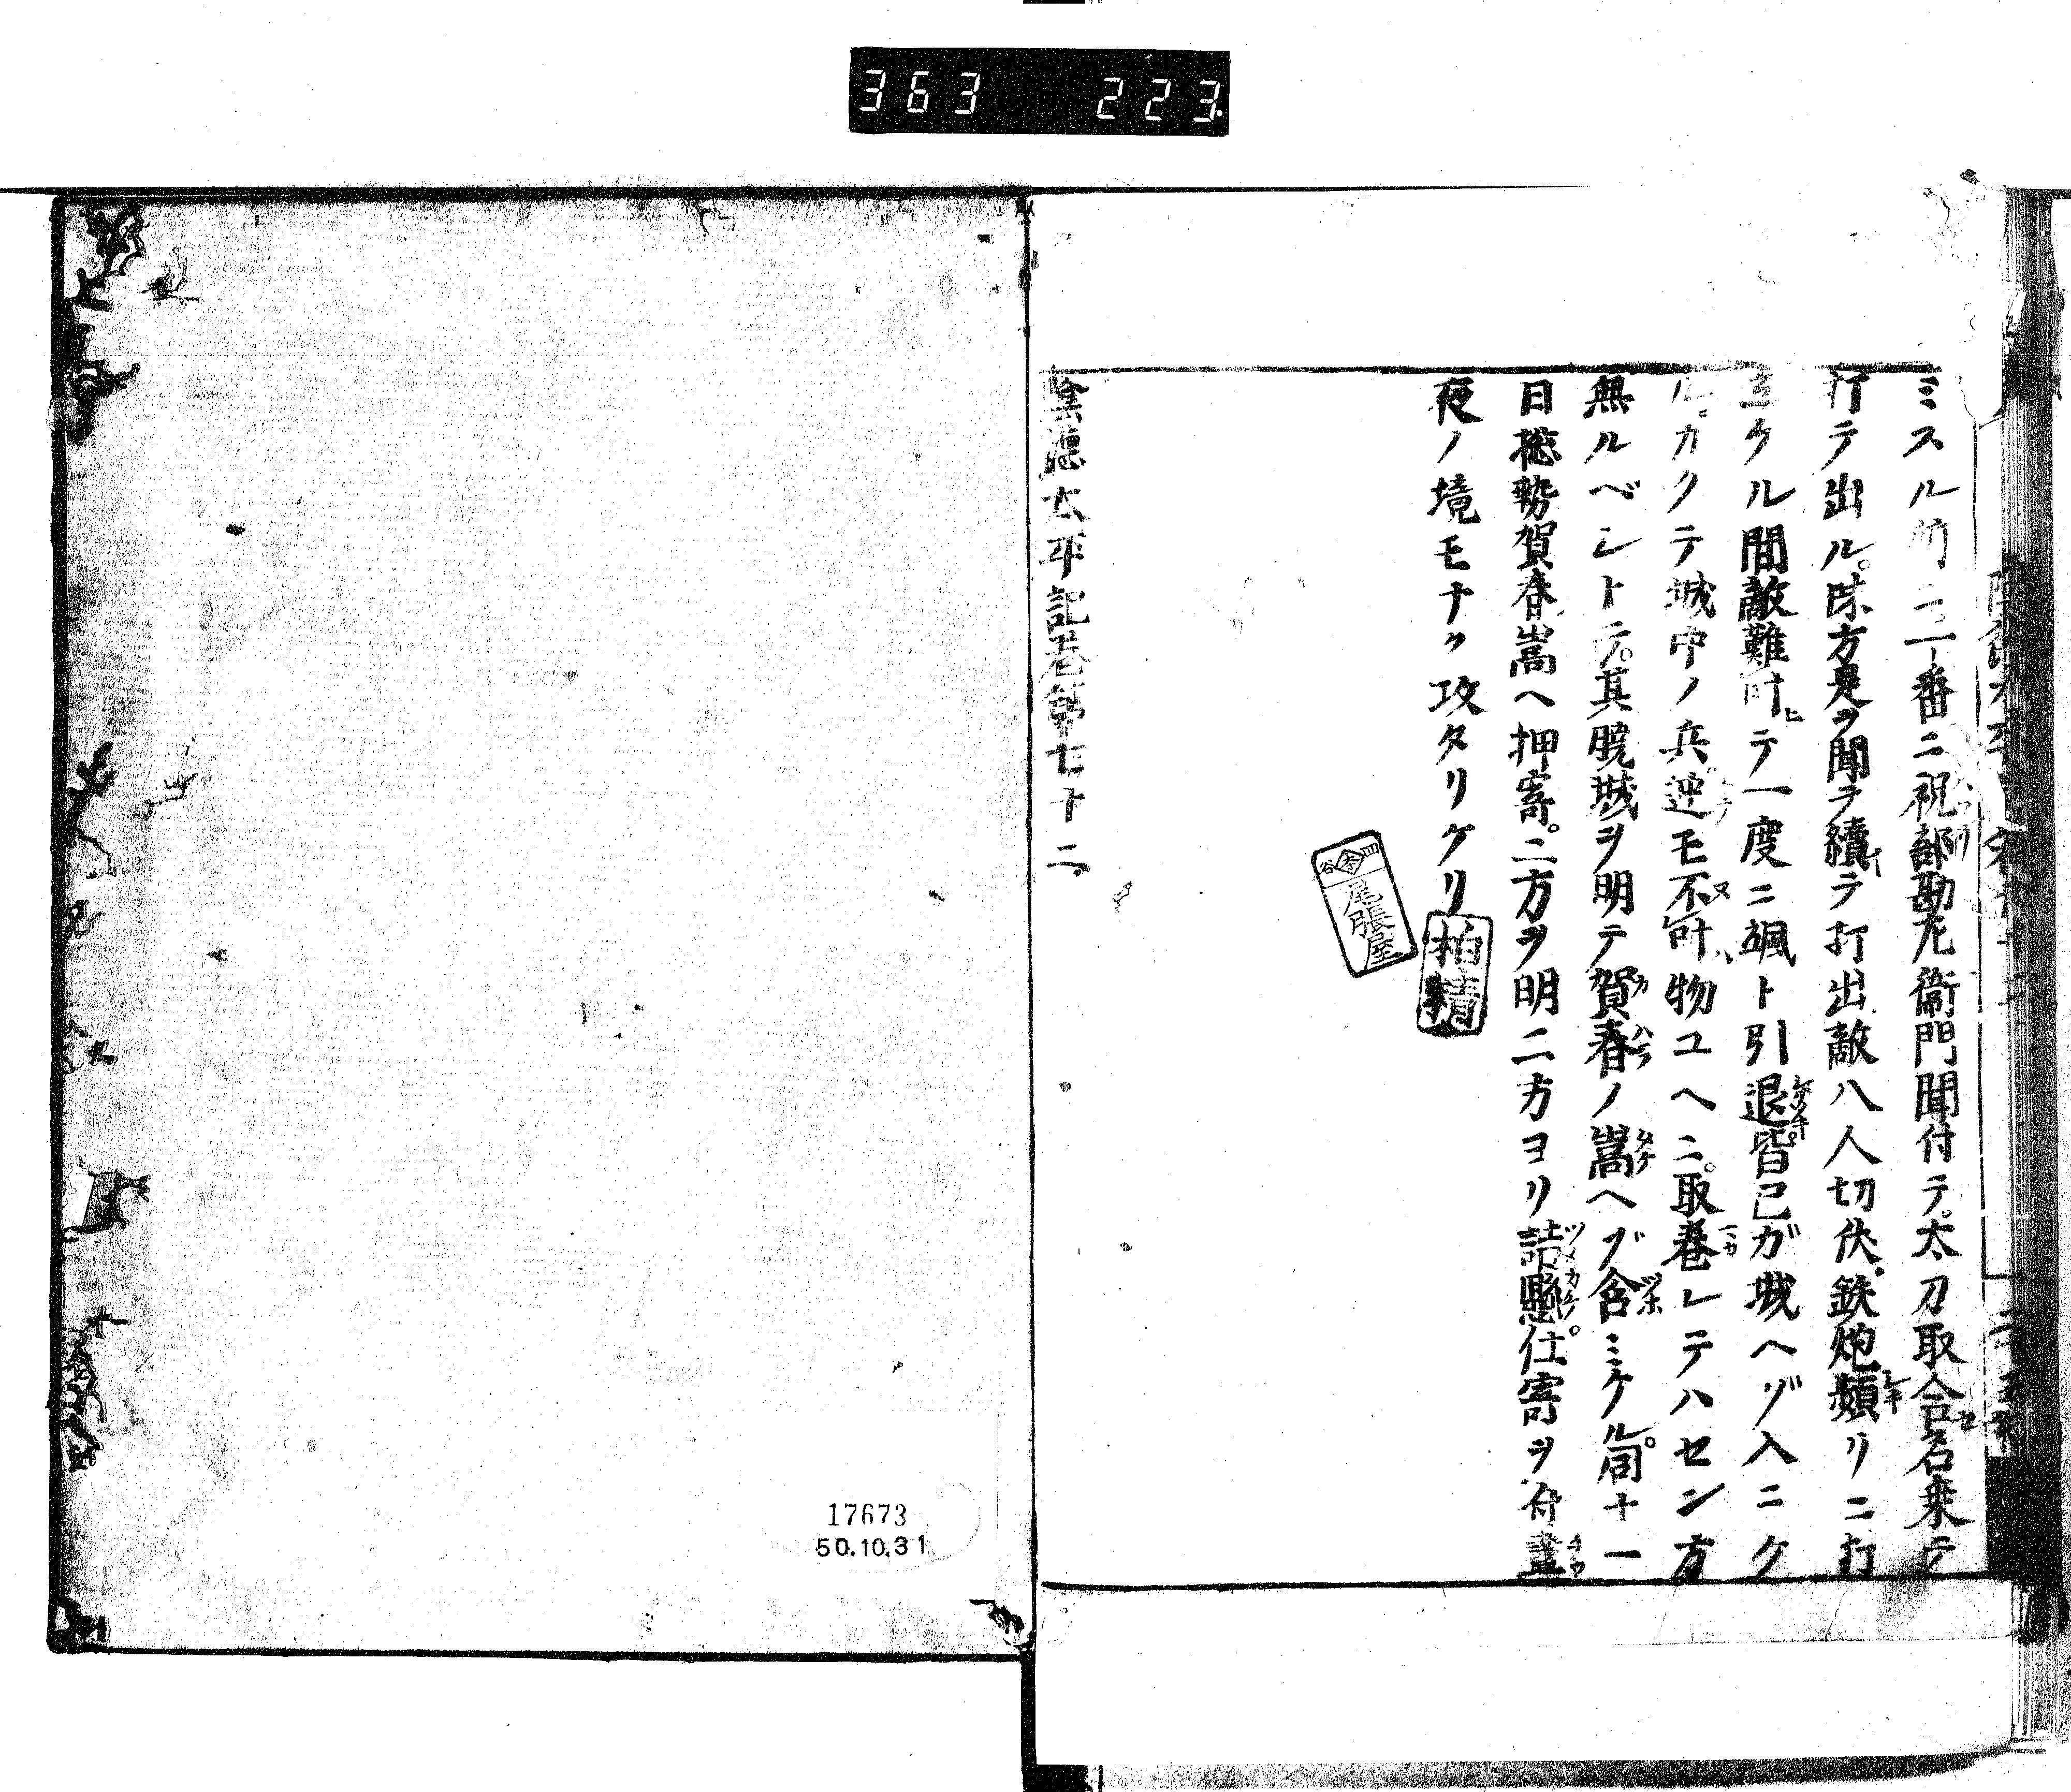 363 223
ミスル所ニ。一番ニ祝部勘左衞門聞付テ。太刀取合名乗テ
打テ出ル。味方是ヲ聞テ續テ打出敵八人切伏。鉄炮頻リニ打
ケル間敵難叶テ一度ニ颯ト引退。皆己ガ城ヘゾ入ニケ
ル。カクテ城中ノ兵。迚モ不叶物ユヘニ。取巻レテハセン方
無ルベシトテ。其曉城ヲ明テ賀春ノ嵩ヘゾ含ミケル。同十一
日捴勢賀春嵩ヘ押寄。二方ヲ明二方ヨリ詰懸。仕寄ヲ付晝
夜ノ境モナク攻タリケリ
柏精
四谷 尾張屋
陰德太平記卷第七十二
17673
50.10.31